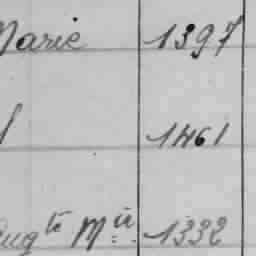 Marie 1397
1461
Augte Mie 1332